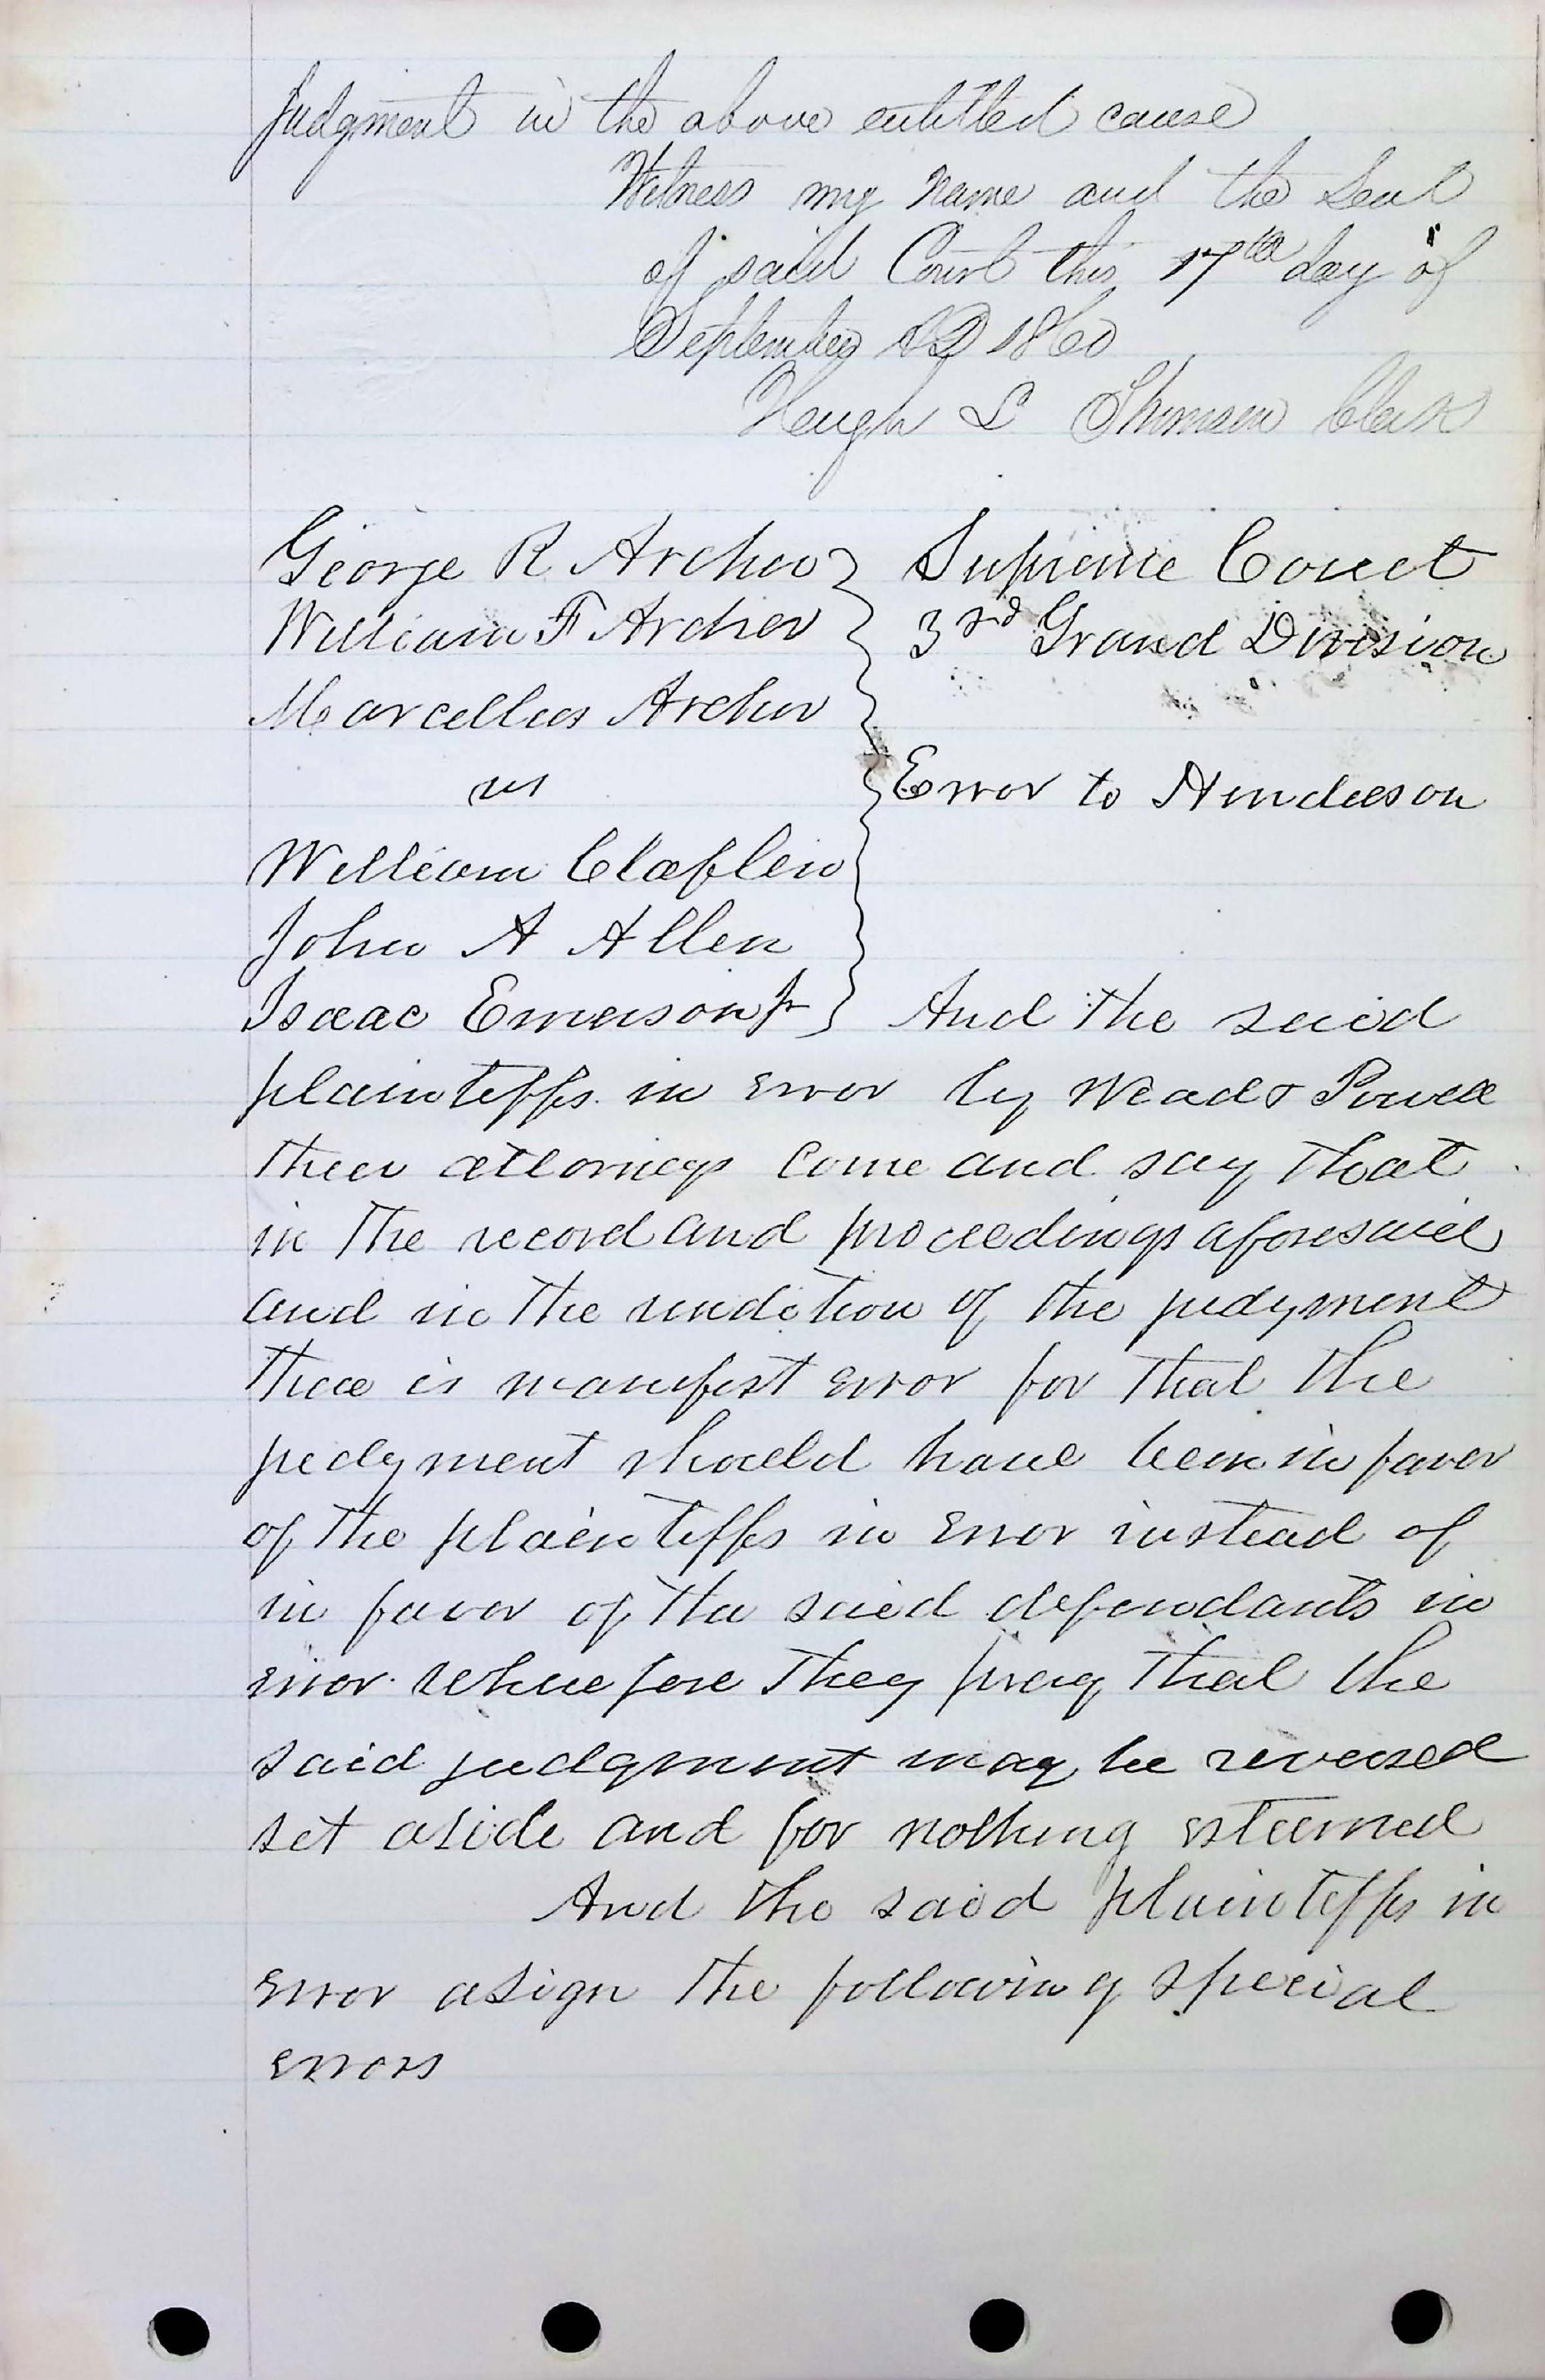 Judgment in the above entitled cause
Witness my name and the Seal
of said Court this 17th day of
September AD 1860
Hugh L Thomson Clerk
George R Archer
William F Archer
Marcellus Archer
vs
William Claflin
John A Allen
Isaac Emerson Jr
Supreme Court
3rd Grand Division
Error to Henderson
And the said
plaintiffs in error by Wead & Powell
their attorneys come and say that
in the record and proceedings aforesaid
and in the rendition of the judgment
there is manifest error for that the
judgment should have been in favor
of the plaintiffs in error instead of
in favor of the said defendants in
error wherefore they pray that the
said judgment may be reversed
set aside and for nothing esteemed
And the said plaintiffs in
error asign the following special
errors